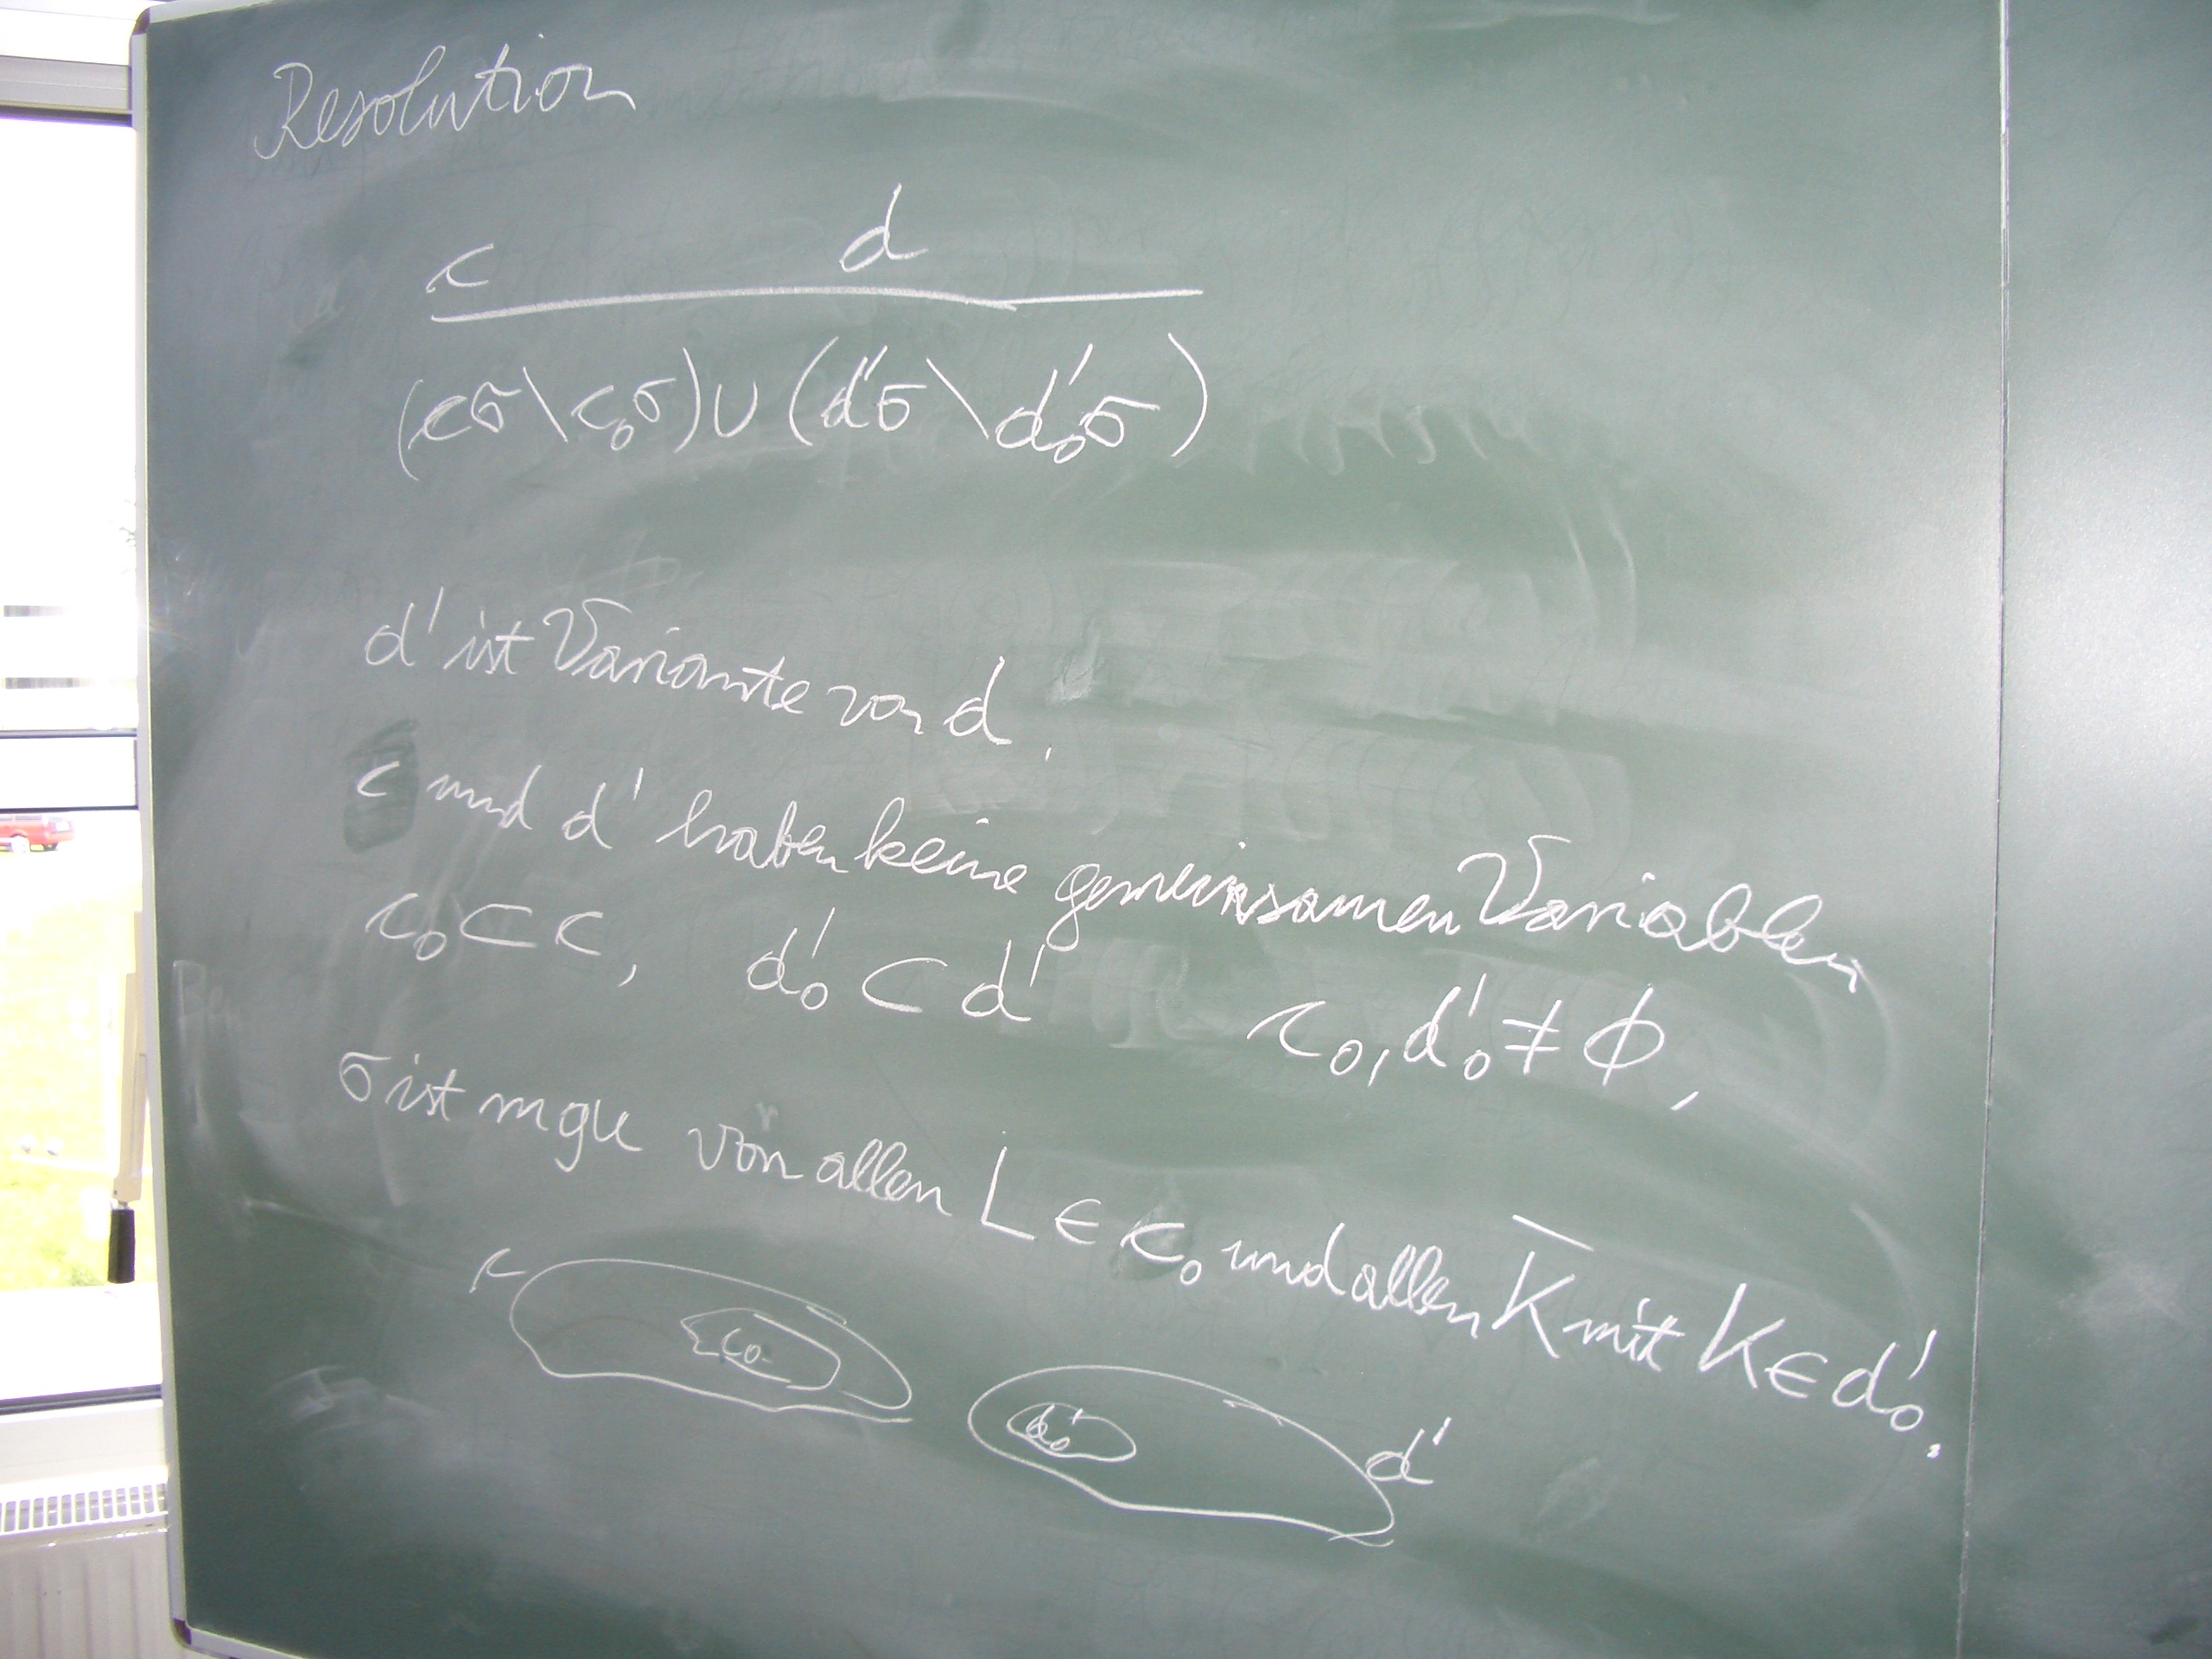 Resolution
c d
(cσ\c₀σ)∪(d'σ\d'₀σ)
d' ist Variante von d,
c und d' haben keine gemeinsamen Variablen
c₀⊂c, d'₀⊂d' c₀,d'₀≠∅,
σ ist mgu von allen L∈c₀ und allen K̅ mit K∈d'₀.
c
c₀
d'₀
d'